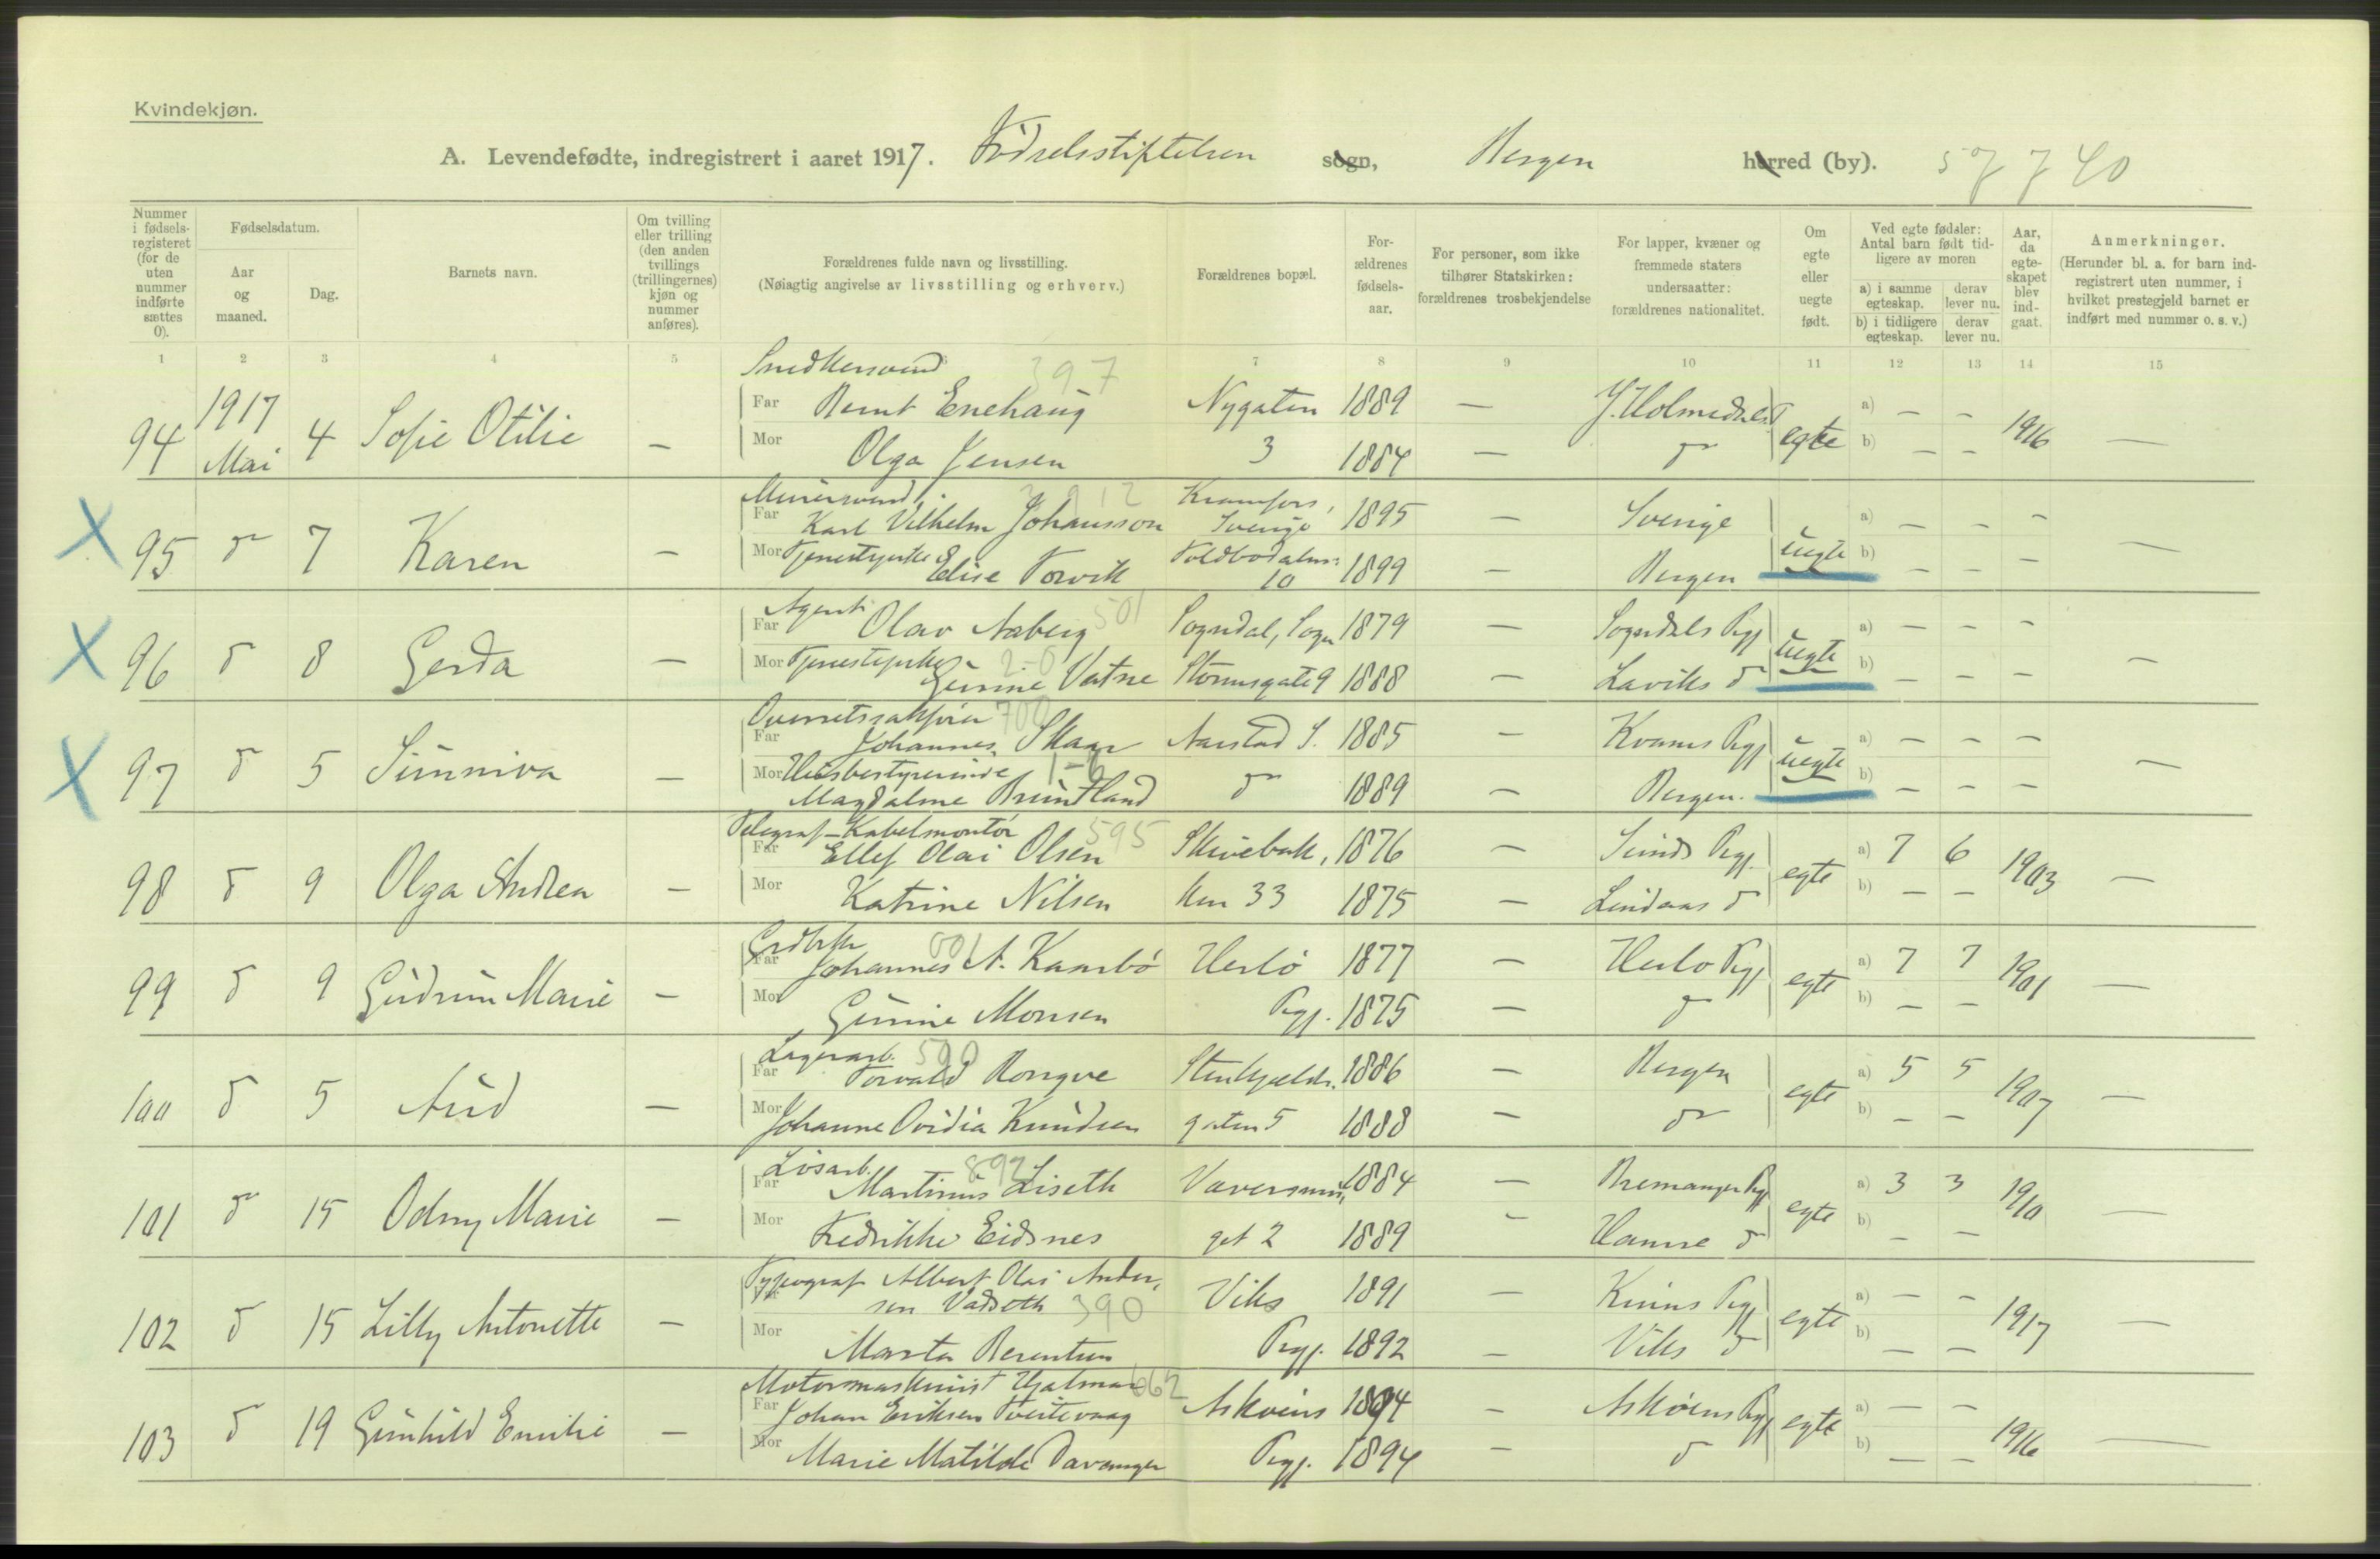 Kvindekjøn.
A. Levendefødte, indregistrert i aaret 1917. Födselsstiftelsen sogn, Bergen herred (by). 57740
Nummer i fødselsregisteret (for de uten nummer indførte sættes 0).
Fødselsdatum.
Aar og maaned.
Dag.
Barnets navn.
Om tvilling eller trilling (den anden tvillings (trillingernes) kjøn og nummer anføres).
Forældrenes fulde navn og livsstilling.
(Nøiagtig angivelse av livsstilling og erhverv.)
Forældrenes bopæl.
Forældrenes fødselsaar.
For personer, som ikke tilhører Statskirken: forældrenes trosbekjendelse
For lapper, kvæner og fremmede staters undersaatter: forældrenes nationalitet.
Om egte eller uegte født.
Ved egte fødsler: Antal barn født tidligere av moren
a) i samme egteskap. derav lever nu.
b) i tidligere egteskap. derav lever nu.
Aar, da egteskapet blev indgaat.
Anmerkninger.
(Herunder bl. a. for barn indregistrert uten nummer, i hvilket prestegjeld barnet er indført med nummer o. s. v.)
1 2 3 4 5 6 7 8 9 10 11 12 13 14 15
Snedkersvend 397
94 1917 Mai 4 Sofie Otilie — Far Bernt Enehaug Nygaten 1889 — egte a) — — 1916 —
Mor Olga Jensen 3 1884 — d b) — —
Murersvend, Kramfors,
X 95 d 7 Karen — Far Karl Vilhelm Johansson Sverige 1895 — Sverige uegte a) — — — —
Mor Tjenestepike Elise Torvik Toldbodalm: 10 1899 — Bergen b) — — —
Agent 501
X 96 d 8 Gerda — Far Olav Aaberg Sogndal, Sogn 1879 — Sogndals Pgj uegte a) — — — —
Mor Tjenestepike Gunne Vatne Stormsgate 9 1888 — Laviks d b) — — —
Overretssakfører 700
X 97 d 5 Sunniva — Far Johannes Skaar Aarstad S. 1885 — Kvams Pgj uegte a) — — — —
Mor Husbestyrerinde 1-6 Magdalene Bruntland d 1889 — Bergen. b) — — —
Telegraf-Kabelmontör 595
98 d 9 Olga Andrea — Far Ellef Olai Olsen Skivebak, 1876 — Sunds Pgj. egte a) 7 6 1903 —
Mor Katrine Nilsen ken 33 1875 — Lindaas d b) — —
Grdbr 001
99 d 9 Gudrun Marie — Far Johannes A. Kaarbö Herlö 1877 — Herlo Pgj egte a) 7 7 1901 —
Mor Gunne Monsen Pgj. 1875 — d b) — —
Lagerarb. 590
100 d 5 Aud — Far Torvald Rongve Stenkjelder 1886 — Bergen egte a) 5 5 1907 —
Mor Johanne Ovidia Knudsen gaten 5 1888 — d b) — —
Lösarb. 892
101 d 15 Odny Marie — Far Martinus Liseth 1884 — Bremanger Pgj egte a) 3 3 1910 —
Mor Fredrikke Eidsnes gt 2 1889 — Hamre d b) — —
Typograf Albert Olai Ander,
102 d 15 Lilly Antonette — sen Vadseth 390 Viks 1891 — Kinns Pgj egte a) — — 1917 —
Mor Marta Berentsen Pgj. 1892 — Viks d b) — —
Motormaskinist Hjalmar 662
103 d 19 Gunhild Emilie — Far Johan Eriksen Tveitevaag Askøens 1894 — Askøens Pgj egte a) — — 1916 —
Mor Marie Matilde Davanger Pgj. 1894 — d b) — —